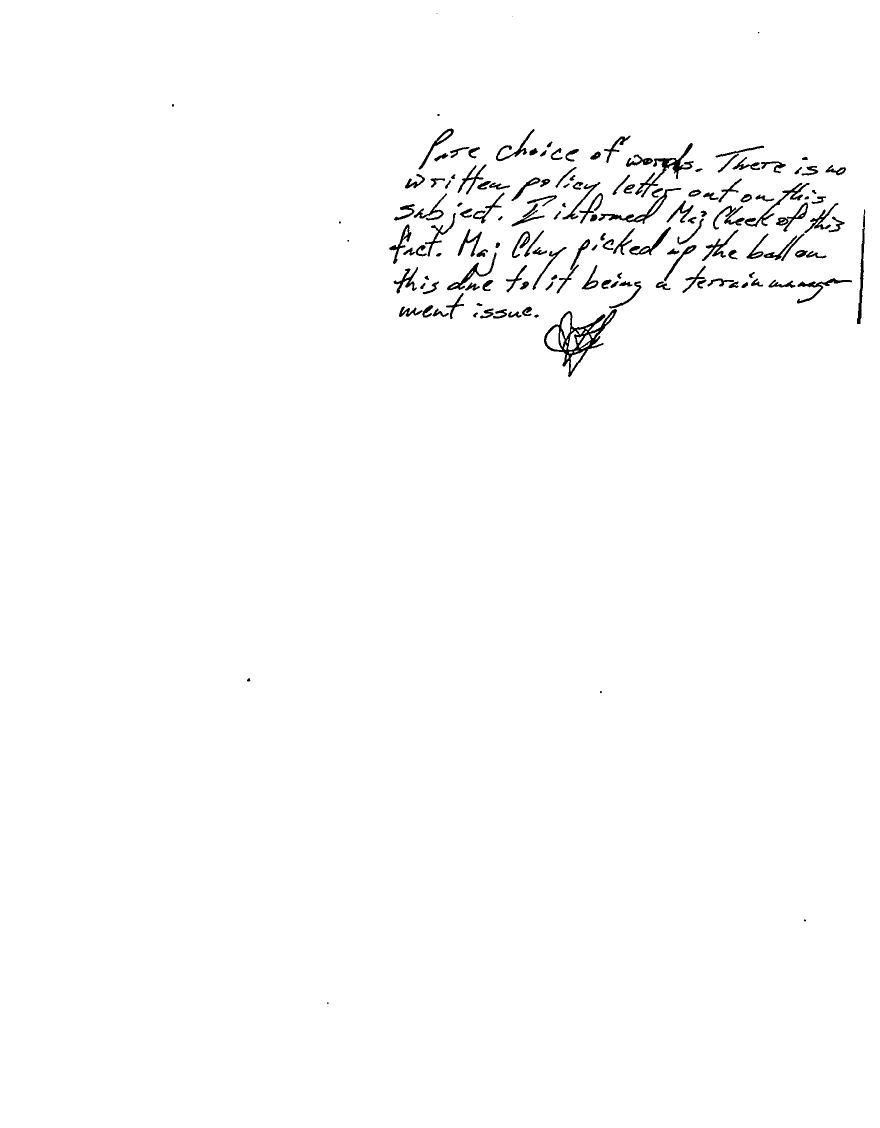 Pure choice of words. There is no
written policy letter out on this
subject. I informed Maj Cheek of this
fact. Maj Clay picked up the ball on
this due to it being a terrain manage-
ment issue.